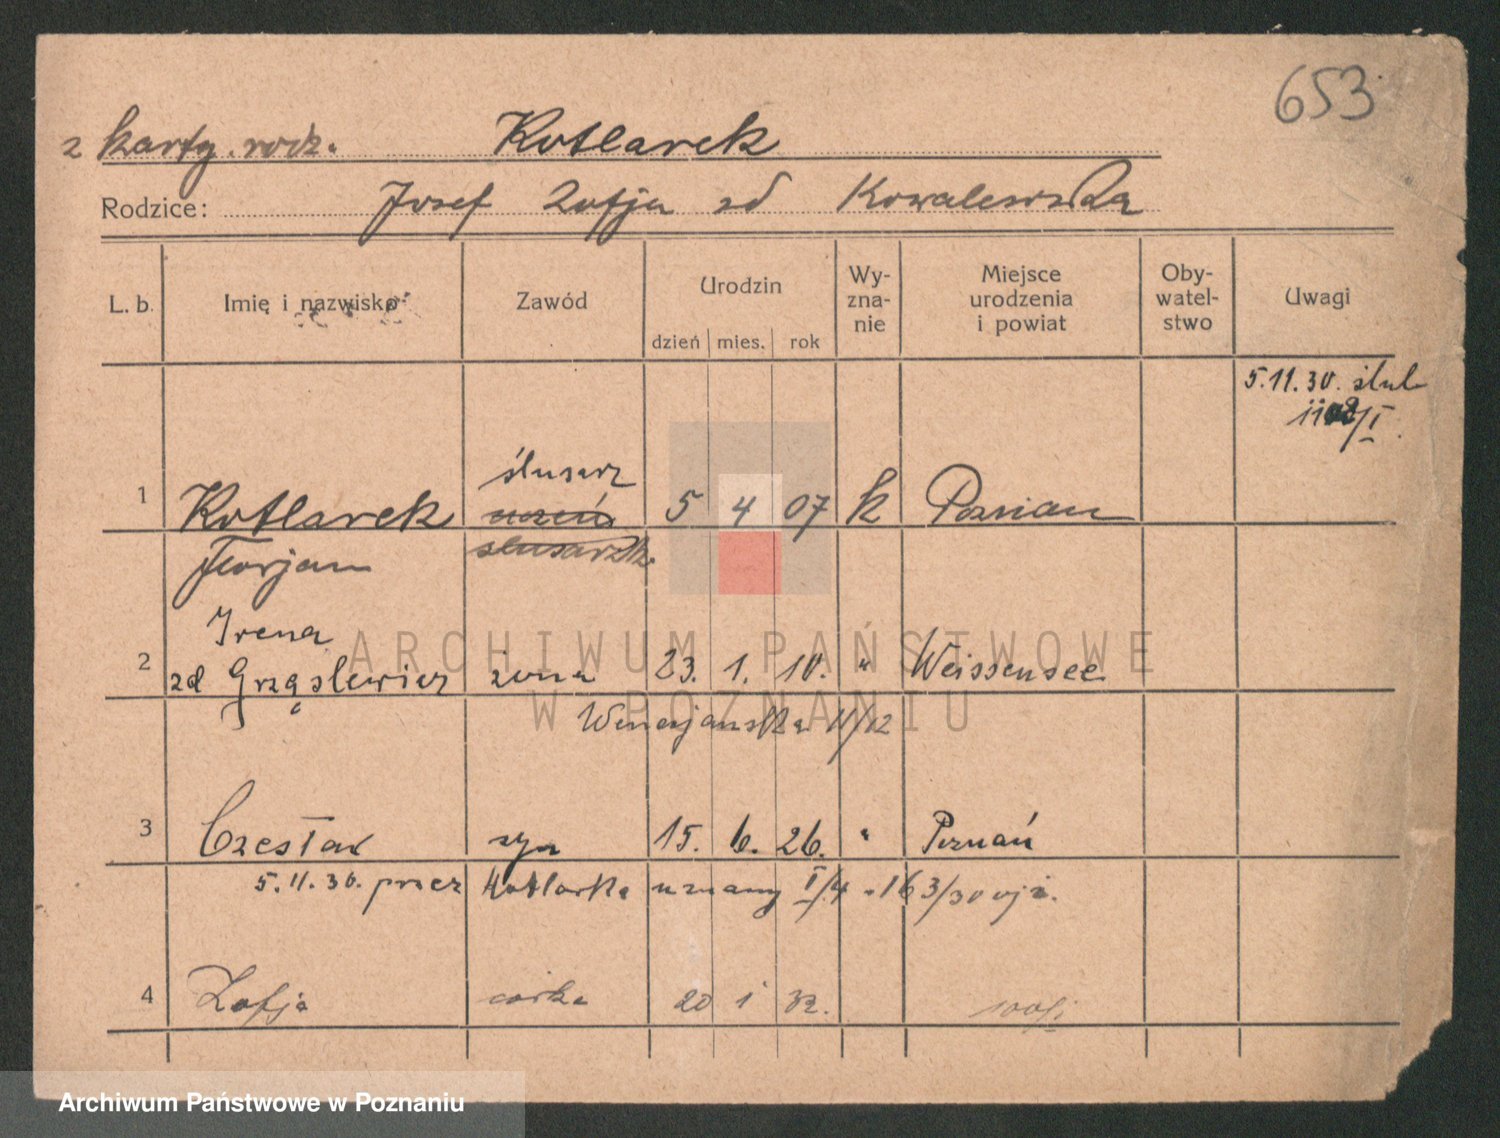 653
z karty rodz. Kotlarek
Rodzice: Josef Zofja zd Kowalewska
L. b. Imię i nazwisko Zawód Urodzin Wy- Miejsce Oby- Uwagi
zna- urodzenia watel-
nie i powiat stwo
dzień mies. rok
5.11.30. ślub
/I
ślusarz
1 Kotlarek uczeń 5 4 07 k Poznan
Florjan slusarzk.
Irena
2 zd Grząślewicz żona 23. 1. 10. " Weissensee
Wenecjanska 11/12
3 Czesław syn 15. 6. 26. " Poznań
5.11.30. przez Kotlarka uznany I/4 163/30
4 Zofja córka 20 1 32.
ARCHIWUM PAŃSTWOWE
W POZNANIU
Archiwum Państwowe w Poznaniu